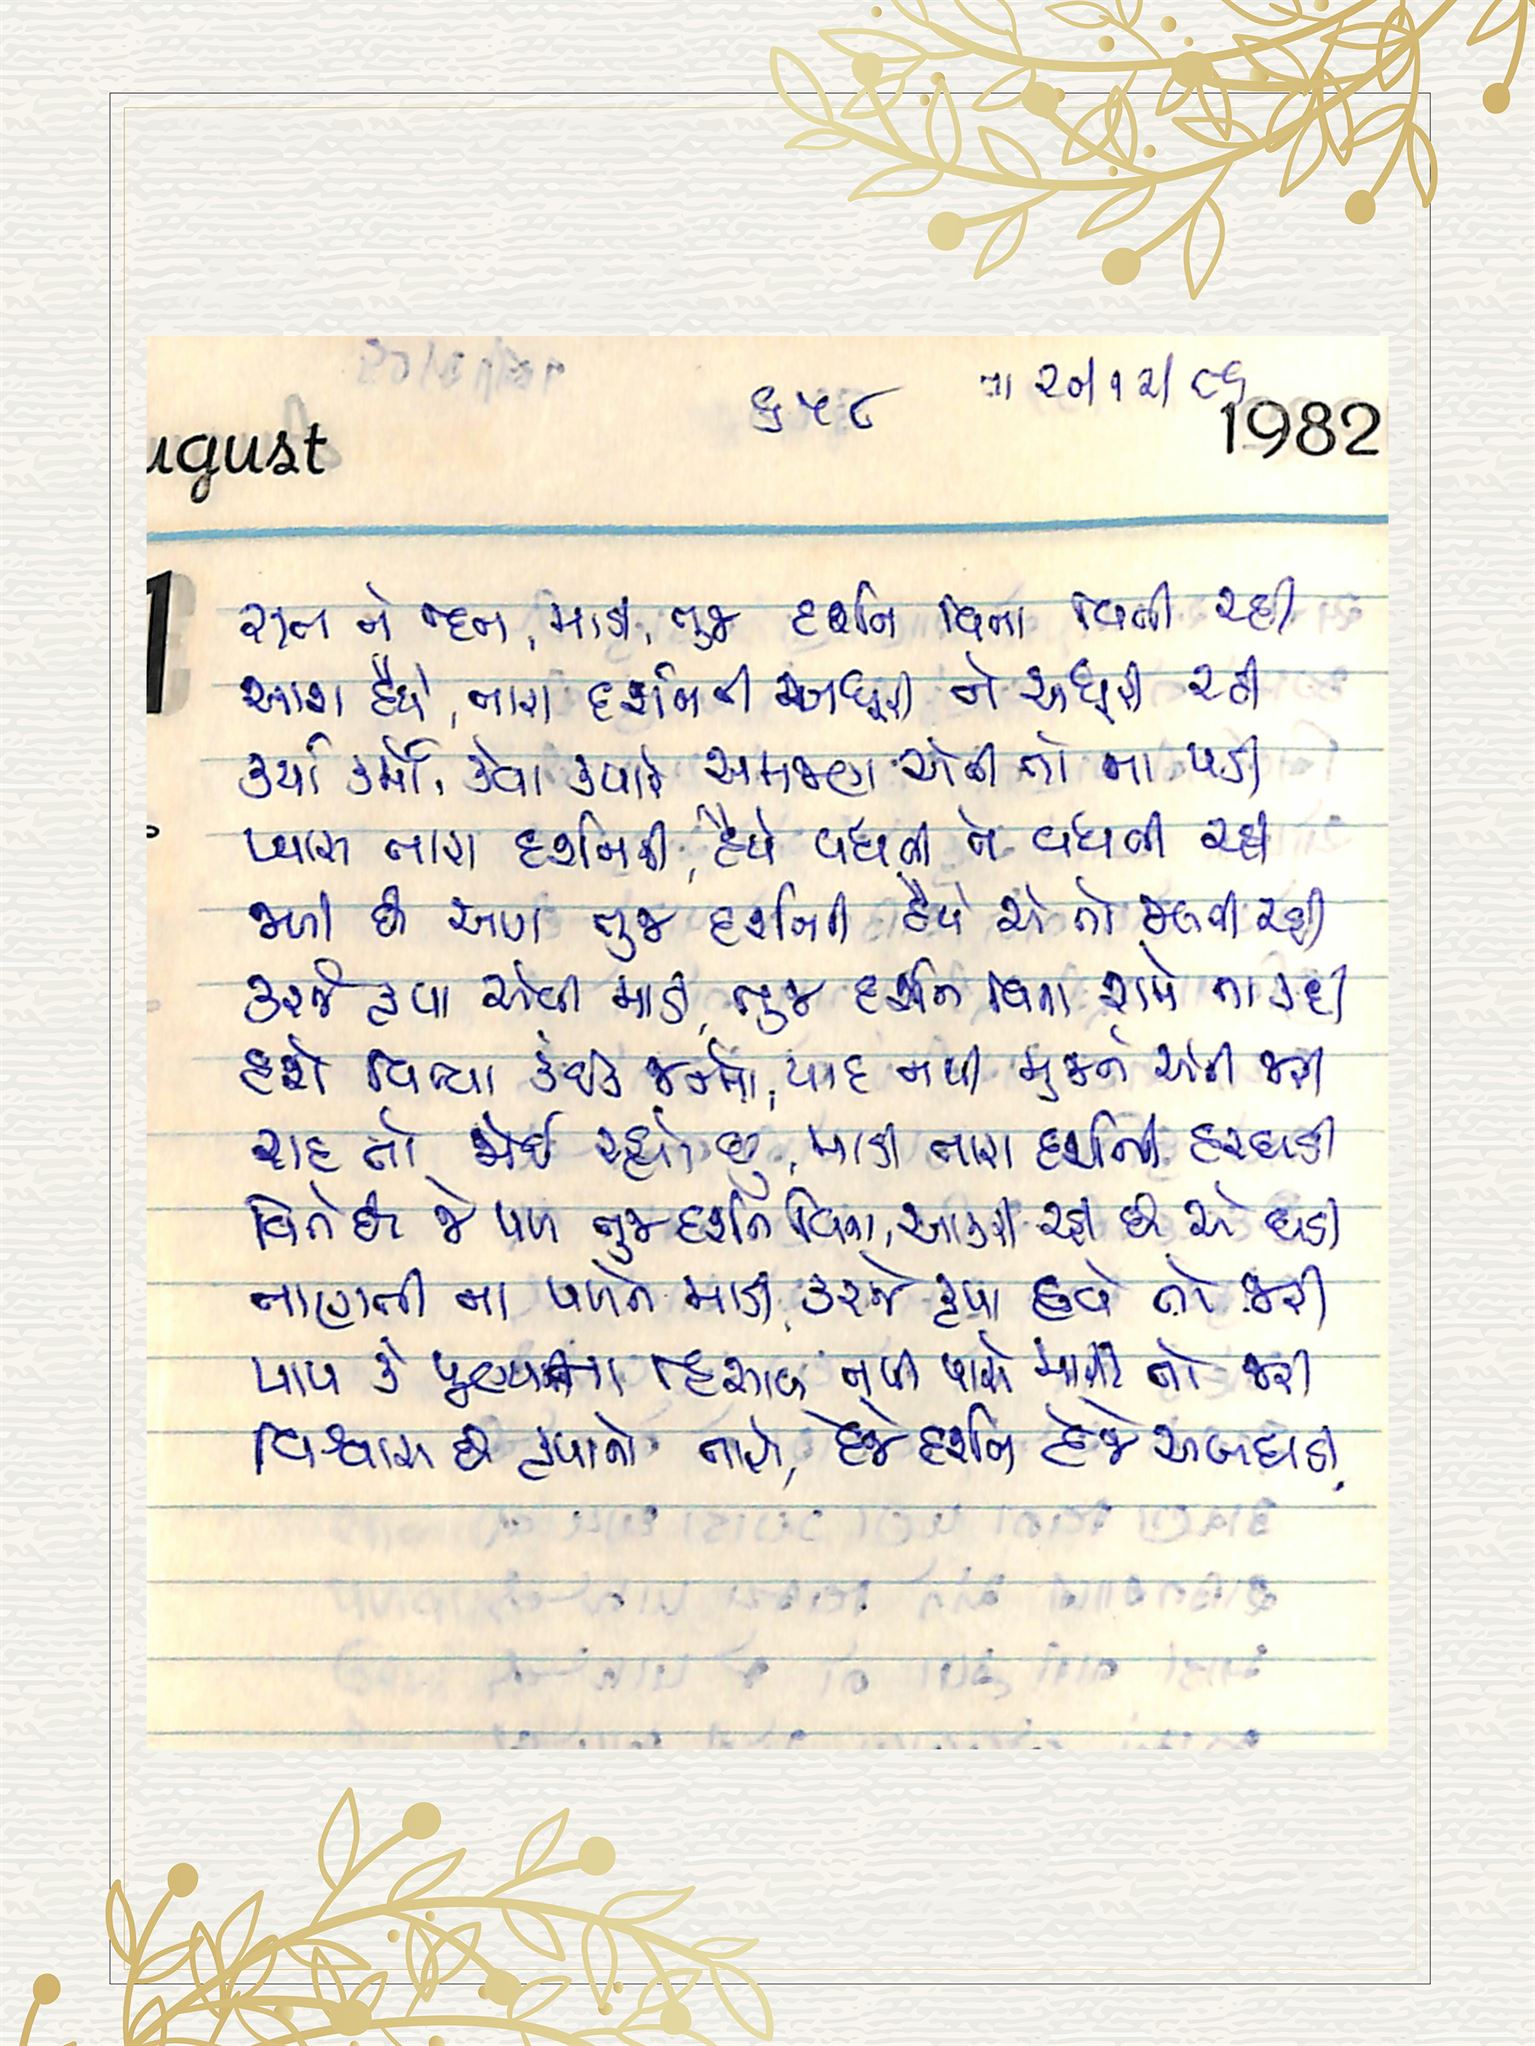 ૬૫૮ તા ૨૦/૧૨/૮૬
ugust 1982
1
રાત ને દિન, માડી, તુજ દર્શન વિના વિતી રહી
આશ હૈયે, તારા દર્શનની અધૂરી ને અધૂરી રહી
કર્યા કર્મો, કેવા ક્યારે સમજણ એની તો ના પડી
પ્યાસ તારા દર્શનની, હૈયે વધતી ને વધતી રહી
જાગી છે આગ તુજ દર્શનની હૈયે એ તો જલતી રહી
કરજે કૃપા એવી માડી, તુજ દર્શન વિના શમે ના કદી
હશે વિત્યા કંઈક જન્મો, યાદ નથી મુજને એની જરી
રાહ તો જોઈ રહ્યો છું, માડી તારા દર્શનની હરઘડી
વિતે છે જે પળ તુજ દર્શન વિના, આકરી રહી છે એ ઘડી
તાણતી ના પળને માડી, કરજે કૃપા હવે તો જરી
પાપ કે પુણ્યના હિસાબ નથી પાસે મારી તો જરી
વિશ્વાસ છે કૃપાનો તારો, દેજે દર્શન દેજે આ ઘડી.